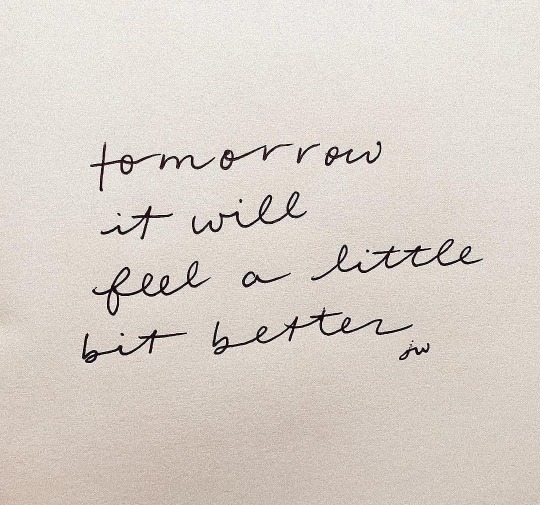 tomorrow
it will
feel a little
bit better
jw